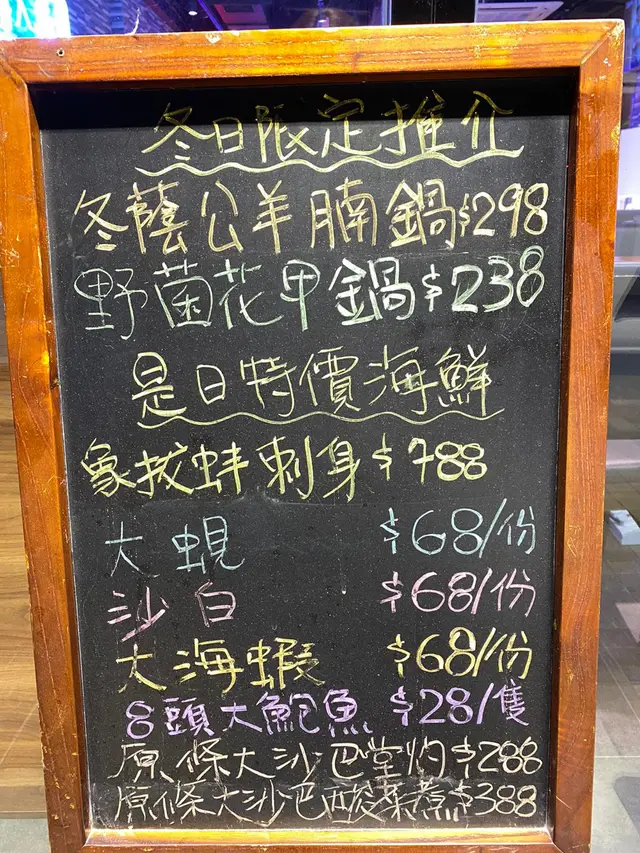 冬日限定推介
冬蔭公羊腩鍋$298
野菌花甲鍋$238
是日特價海鮮
象拔蚌刺身$788
大蜆 $68/份
沙白 $68/份
大海蝦 $68/份
8頭大鮑魚 $28/隻
原條大沙巴堂灼$288
原條大沙巴酸菜煮$388